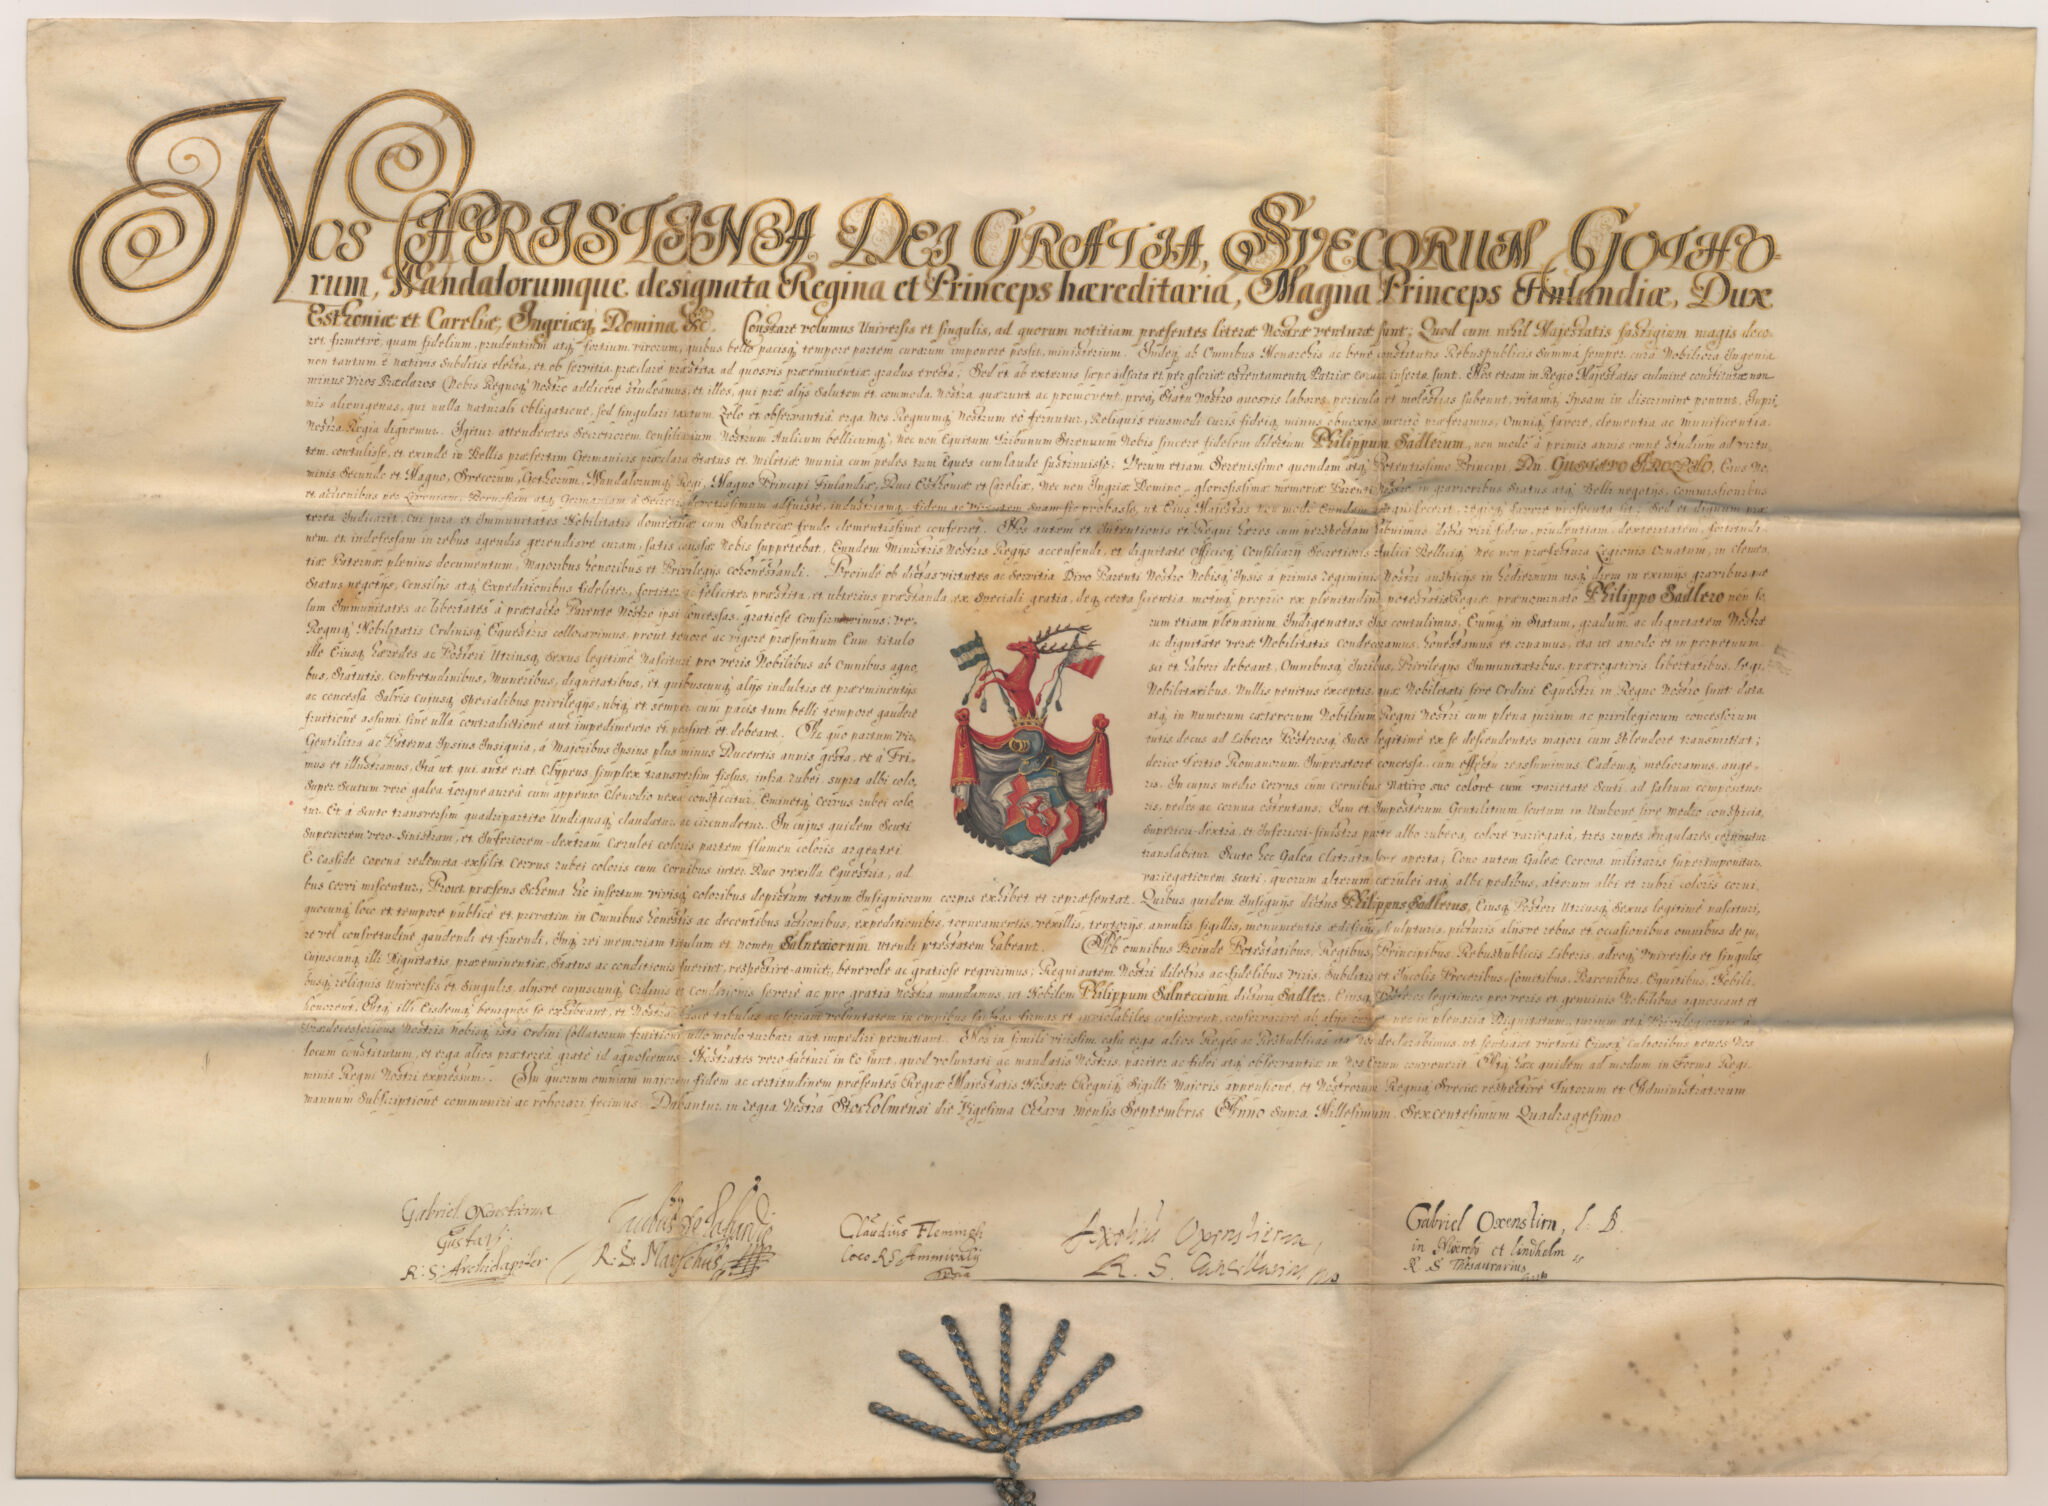 NOS CHRISTINA DEI GRATIA, SVECORUM GOTHO-
rum, Wandalorumque designata Regina et Princeps hæreditaria, Magna Princeps Finlandiæ, Dux
Esthoniæ et Careliæ, Ingriæq Domina &c. Constare volumus Universis et singulis, ad quorum notitiam præsentes literæ Nostræ venturæ sunt; Quod cum nihil Majestatis fastigium magis deco-
ret firmetve, quam fidelium, prudentium atq fortium virorum, quibus belli pacisq tempore partem curarum imponere possit, ministerium. Indeq ab Omnibus Monarchis ac bene constitutis Rebuspublicis Summa semper cura Nobiliora Ingenia
non tantum è nativis Subditis electa, et ob servitia præclare præstita ad quosvis præeminentiæ gradus evecta; Sed et ab externis sæpe adscita et per gloriæ ostentamenta Patriæ inserta sunt. Nos etiam in Regio Majestatis culmine constitutæ non-
minus viros Præclaros Nobis Regnoq Nostro addicere studeamus, et illos, qui præ alijs Salutem et commoda nostra quærunt ac promovent, proq Statu Nostro quosvis labores, pericula et molestias subeunt, vitamq Ipsam in discrimine ponunt,
mis alienigenas, qui nulla naturali obligatione, sed singulari tantum Zelo et observantiâ erga Nos Regnumq Nostrum eò feruntur, Reliquis eiusmodi curis fideiq minus obnoxijs meritò præferamus, Omniq favore, clementia ac munificentia
Nostra Regia dignemur. Igitur attendentes Secretiorem Consiliarium Nostrum Aulicum bellicumq, nec non Equitum Tribunum Strenuum Nobis sincere fidelem dilectum Philippum Sadlerum, non modò à primis annis omne studium ad virtu-
tem contulisse, et exinde in Bellis præsertim Germanicis præclara Status et Militiæ munia cum pedes tum Eques cum laude sustinuisse; Verum etiam Serenissimo quondam atq Potentissimo Principi, Dn. GUSTAVO ADOLPHO, Eius No-
minis Secundo et Magno, Svecorum, Gothorum, Wandalorumq Regi, Magno Principi Finlandiæ, Duci Esthoniæ et Careliæ, nec non Ingriæ Domino, gloriosissimæ memoriæ Parenti Nostro, in gravioribus Status atq Belli negotijs, Commissionibus
et actionibus per Livoniam, Borussiam atq Germaniam à Secretis devotissimum adfuisse, industriamq fidem ac virtutem suam sic probasse, ut Eius Majestas non modò Eundem regioq favore prosecuta sit; Sed et dignum præ
terea Iudicarit, cui jura et Immunitates Nobilitatis domesticæ cum Salneccæ feudo clementissime conferret. Nos autem et Intentionis et Regni hæres cum perspectam habuimus dicti viri fidem, prudentiam, dexteritatem, fortitudi-
nem et indefessam in rebus agendis gerendisve curam, satis causæ Nobis suppetebat, Eundem Ministris Nostris Regijs accensendi, et dignitate officioq Consiliarij Secretioris Aulici Bellicique nec non præfectura Legionis Ornatum, in clemen-
tiæ Paternæ plenius documentum, Majoribus honoribus et Privilegijs cohonestandi. Proinde ob dictas virtutes ac servitia Divo Parenti Nostro Nobisq Ipsis à primis regiminis Nostri auspicijs in hodiernum usq diem in eximijs gravibusque
Status negotijs, Consilijs atq Expeditionibus fideliter, fortiter ac feliciter præstita, et ulterius præstanda, ex speciali gratia, deq certa scientia motuq proprio ex plenitudine potestatis Regiæ, prænominato Philippo Sadlero non so-
lum Immunitates ac libertates à prætacto Parente Nostro ipsi concessas, gratiose confirmavimus; ve-
rum etiam plenarium Indigenatus Jus contulimus, Eumq in Statum, gradum, ac dignitatem Nostræ
Regniq Nobilitatis Ordinisq Equestris collocavimus, prout tenore ac vigore præsentium Eum titulo
ac dignitate veræ Nobilitatis condecoramus, honestamus et ornamus, ita ut amodò et in perpetuum
ille Eiusq hæredes ac Posteri Utriusq Sexus legitimè nascituri pro veris Nobilibus ab Omnibus agno-
sci et haberi debeant, Omnibusq Iuribus, Privilegijs Immunitatibus, prærogativis, libertatibus, legi-
bus, Statutis, Consuetudinibus, Muneribus, dignitatibus, et quibuscunq alijs indultis et præeminentijs
Nobilitaribus, Nullis penitus exceptis, quæ Nobilitati sive Ordini Equestri in Regno Nostro sunt data
ac concessa, Salvis cujusq Specialibus privilegijs, ubiq et semper cum pacis tum belli tempore gaudere
atq in numerum cæterorum Nobilium Regni Nostri cum plena jurium ac privilegiorum concessorum
fruitione assumi sine ulla contradictione aut impedimento et possint et debeant. Ac quo partum vir-
tutis decus ad Liberos Posterosq Suos legitimè ex se descendentes majori cum Splendore transmittat;
Gentilitia ac Paterna Ipsius Insignia, à Majoribus Ipsius plus minus Ducentis annis gesta, et à Fri-
derico Tertio Romanorum Imperatore concessa, cum effectu reassumimus Eademq melioramus, auge-
mus et illustramus, Ita ut qui ante erat Clypeus simplex transversim fissus, infra rubei, supra albi colo-
ris, In cujus medio Cervus cum cornibus Nativo suo colore cum varietate Scuti, ad saltum compositus
Super Scutum verò galea torque aurea cum appenso Clenodio nexa conspicitur, Eminetq Cervus rubei colo-
ris, pedes ac cornua ostentans; Iam et Imposterum Gentilitium scutum in Umbone sive medio conspicia-
tur, Et à Scuto transversim quadripartito Undiquaq claudatur ac circundetur. In cujus quidem Scuti
Superiori-dextra, et Inferiori-sinistra parte albo rubeoq colore variegata, tres rupes Angulares cernuntur
Superiorem vero Sinistram, et Inferiorem-dextram cærulei coloris partem flumen coloris argentei
translabitur. Scuto hoc Galea clatrata sive aperta; Cono autem Galeæ Corona militaris superimponitur,
È casside corona redemeta exsilit Cervus rubei coloris cum cornibus inter Duo vexilla Equestria, ad
variegationem scuti, quorum alterum cærulei atq albi pedibus, alterum albi et rubri coloris corni-
bus cervi miscentur, Prout præsens Schema hic insertum vivisq coloribus depictum totum Insigniorum corpus exhibet et repræsentat. Quibus quidem Insignijs dictus Philippus Sadlerus, Eiusq Posteri Utriusq Sexus legitimè nascituri,
quocunq loco et tempore publicè et privatim in Omnibus honestis ac decentibus actionibus, expeditionibus, torneamentis, vexillis, tentorijs, annulis, sigillis, monumentis ædificijs, sculpturis, picturis alijsve rebus et occasionibus omnibus de ju-
re vel consuetudine gaudendi et fruendi, Inq rei memoriam titulum et nomen Salnecciorum utendi potestatem habeant. Ab omnibus Proinde Potestatibus, Regibus, Principibus, Rebuspublicis Liberis, adeoq Universis et singulis,
Cujuscunq illi Dignitatis, præeminentiæ, Status ac conditionis fuerint, respective amice, benevole ac gratiose requirimus; Regni autem Nostri dilectis ac fidelibus viris, Subditis et Incolis Proceribus, Comitibus, Baronibus, Equitibus, Nobili-
busq reliquis Universis et Singulis, alijsve cujuscunq Ordinis et Conditionis severè ac pro gratia nostra mandamus, ut Nobilem Philippum Salneccium dictum Sadler, Eiusq Posteros legitimos pro veris et genuinis Nobilibus agnoscant et
honorent, Atq illi Eisdemq benignos se exhibeant, et Nostras hasce tabulas ac seriam voluntatem in omnibus firmas et inviolabiles conservent, conservarive ab alijs nec in plenaria Dignitatum, jurium atq Privilegiorum à
Prædecessoribus Nostris nobisq isti Ordini Collatorum fruitione ullo modo turbari aut impediri permittant. Nos in simili vicissim casu erga alios Reges ac Respublicas ita nos declarabimus, ut sentiant virtuti Eiusq Cultoribus penes Nos
locum constitutum, et erga alios præterea gratè id agnoscemus. Nostrates vero facturi in eo sunt, quod voluntati ac mandatis Nostris, pariter ac fidei atq observantiæ in Nos Eorum convenerit. Atq hæc quidem ad modum in Forma Regi-
minis Regni Nostri expressum. In quorum omnium majorem fidem ac certitudinem præsentes Regiæ Majestatis Nostræ Regniq Sigilli Majoris appensione, et Nostrorum Regniq Sveciæ respectivè Tutorum et Administratorum
manuum Subscriptione communiri ac roborari fecimus. Dabantur in regia Nostra Stocholmensi die Vigesima Octava mensis Septembris Anno supra Millesimum Sexcentesimum Quadragesimo
Gabriel Oxenstierna
Gustavi
R: S: Archidapifer
Jacobus De la Gardie
R: S. Marschus
Claudius Flemmingh
loco R S Ammiralij
Axelius Oxenstierna,
R. S. Cancellarius
Gabriel Oxenstiern, l: B.
in Möreby et Lindholm
R. S Thesaurarius